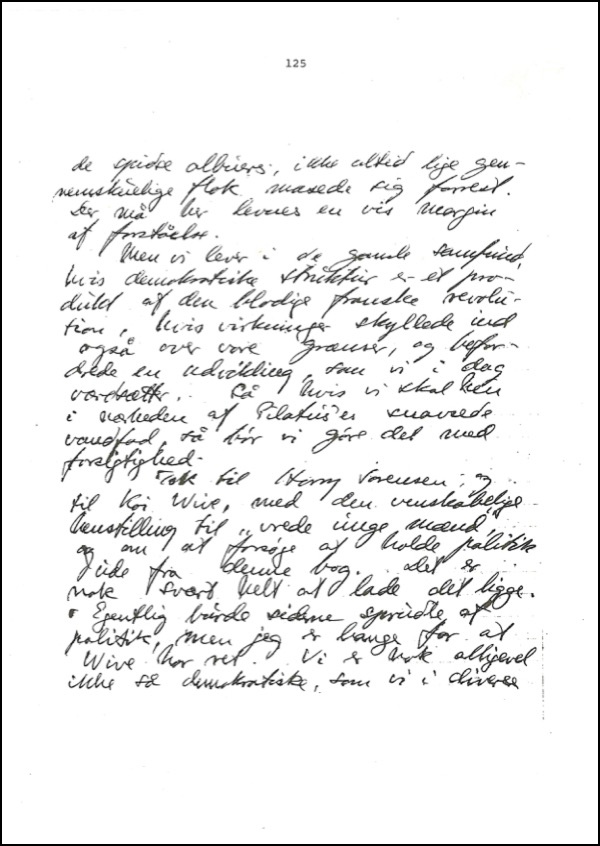 125
de spidse albuers, ikke altid lige gen-
nemskuelige flok masede sig forrest.
Der må her levnes en vis margin
af forståelse.
Men vi lever i de gamle samfund,
hvis demokratiske struktur er et pro-
dukt af den blodige franske revolu-
tion, hvis virkninger skyllede ind
også over vore grænser, og befor-
drede en udvikling, som vi i dag
værdsætter. Så hvis vi skal hen
i nærheden af Pilatus'er snavsede
vandfad, så bør vi gøre det med
forsigtighed.
Tak til Harry Sørensen, og
til Kai Wive, med den venskabelige
henstilling til "vrede unge mænd",
og om at forsøge at holde politik
ude fra denne bog. Det er
nok svært helt at lade det ligge.
Egentlig burde siderne sprudle af
politik, men jeg er bange for at
Wive har ret. Vi er nok alligevel
ikke så demokratiske, som vi i diverse